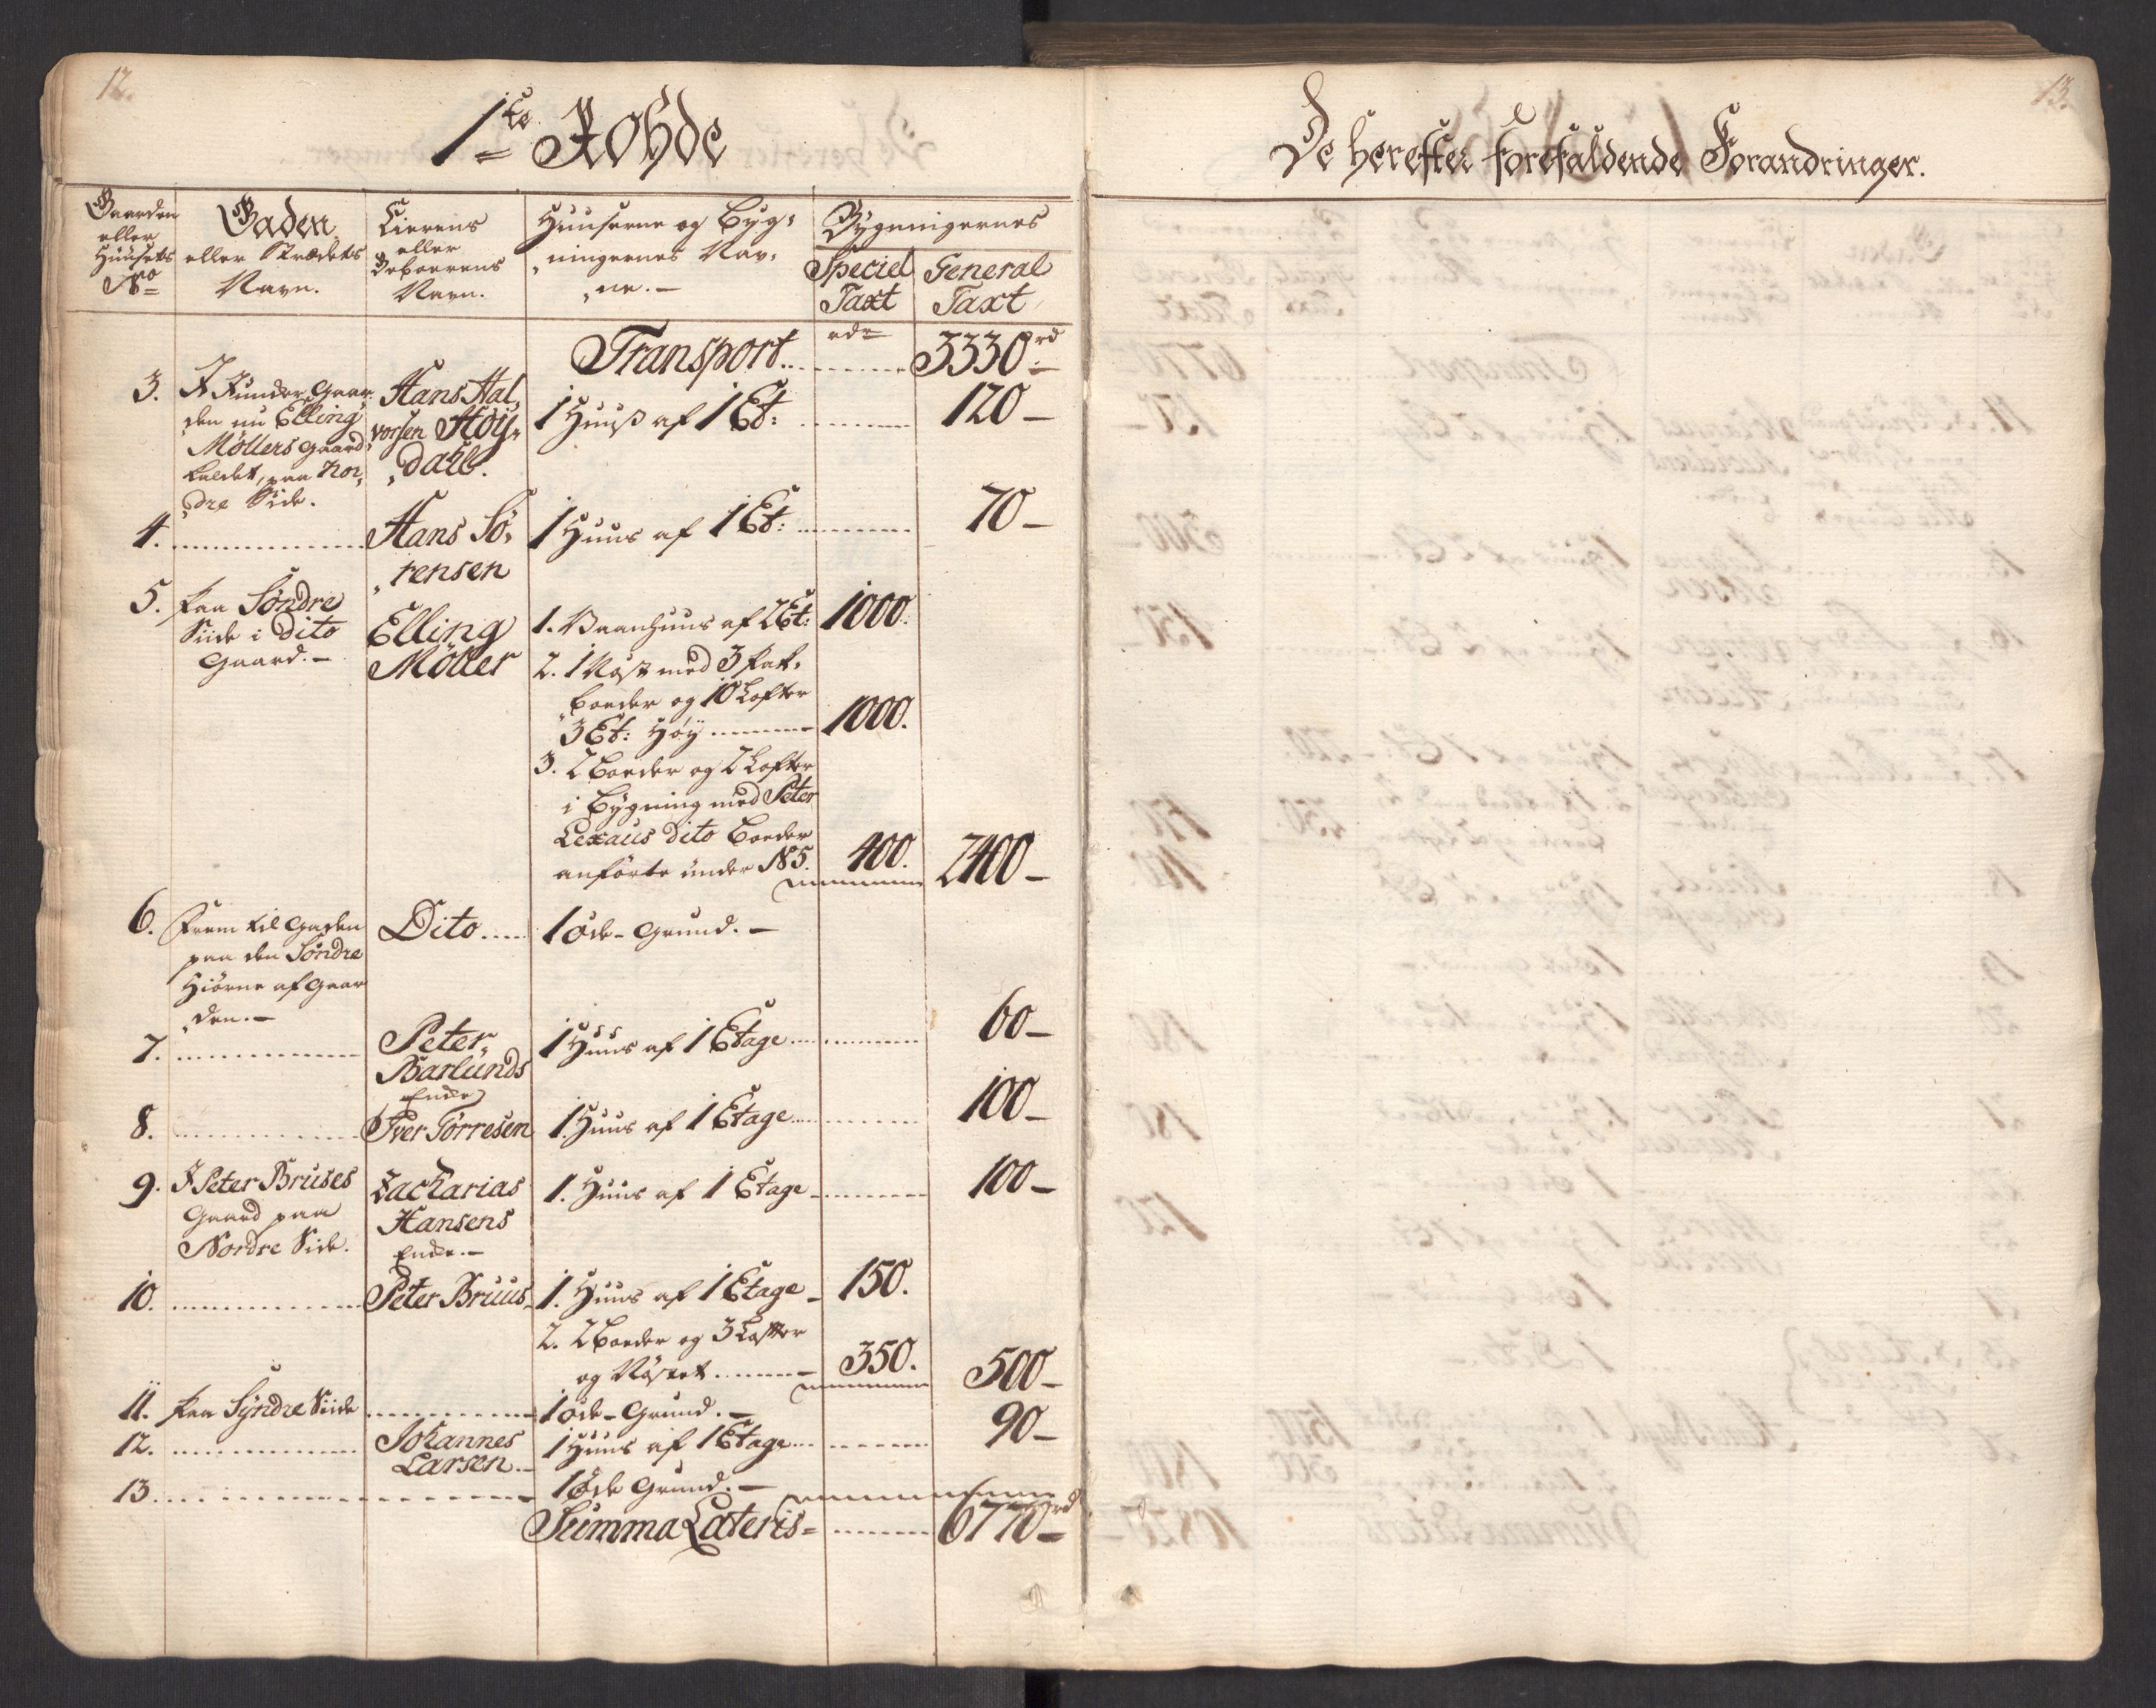 12.
1te Rohde
Gaarden eller Huusets No
Gaden eller Strædets Navn.
Eierens eller Beboerens Navn.
Huuserne og Byg-
ningernes Nav-
ne.
Bygningernes
Speciel Taxt
General Taxt
Transport
rdr
3330 rd
3.
I Kunder Gaar-
den nu Elling
Möllers Gaard
kaldet, paa Nor-
dre Side.
Hans Hal-
vorsen Höy-
dahl.
1 Huuß af 1 Et:
120 –
4.
Hans Sö-
rensen
1 Huus af 1 Et:
70 –
5.
Paa Söndre
Siide i dito
Gaard. –
Elling
Möller
1. Vaanhuus af 2 Et:
1000.
2. 1 Nöst med 3 Pak-
boeder og 10 Lofter
3 Et: Höy
1000.
3. 2 Boeder og 2 Lofter
i Bygning med Peter
Lexaus dito Boeder
anförte under N 5.
400.
2400 –
6.
Frem til Gaden
paa den Söndre
Hiörne af Gaar
den. –
Dito
1 öde-Grund. –
7.
Peter
Barlunds
Enke
1 Huus af 1 Etage
60 –
8.
Iver Törresen
1. Huus af 1 Etage
100 –
9.
I Peter Bruses
Gaard paa
Nordre Side.
Zacharias
Hansens
Enke. –
1. Huus af 1 Etage
100 –
10.
Peter Bruus
1. Huus af 1 Etage
150.
2. 2 Boeder og 3 Lofter
og Nöstet
350.
500 –
11.
Paa Syndre Siide
1 öde-Grund. –
12.
Johannes
Larsen. –
1 Huus af 1 Etage
90 –
13.
1 Öde Grund. –
Summa Lateris =
6770 rd
13.
De herefter forefaldende Forandringer.